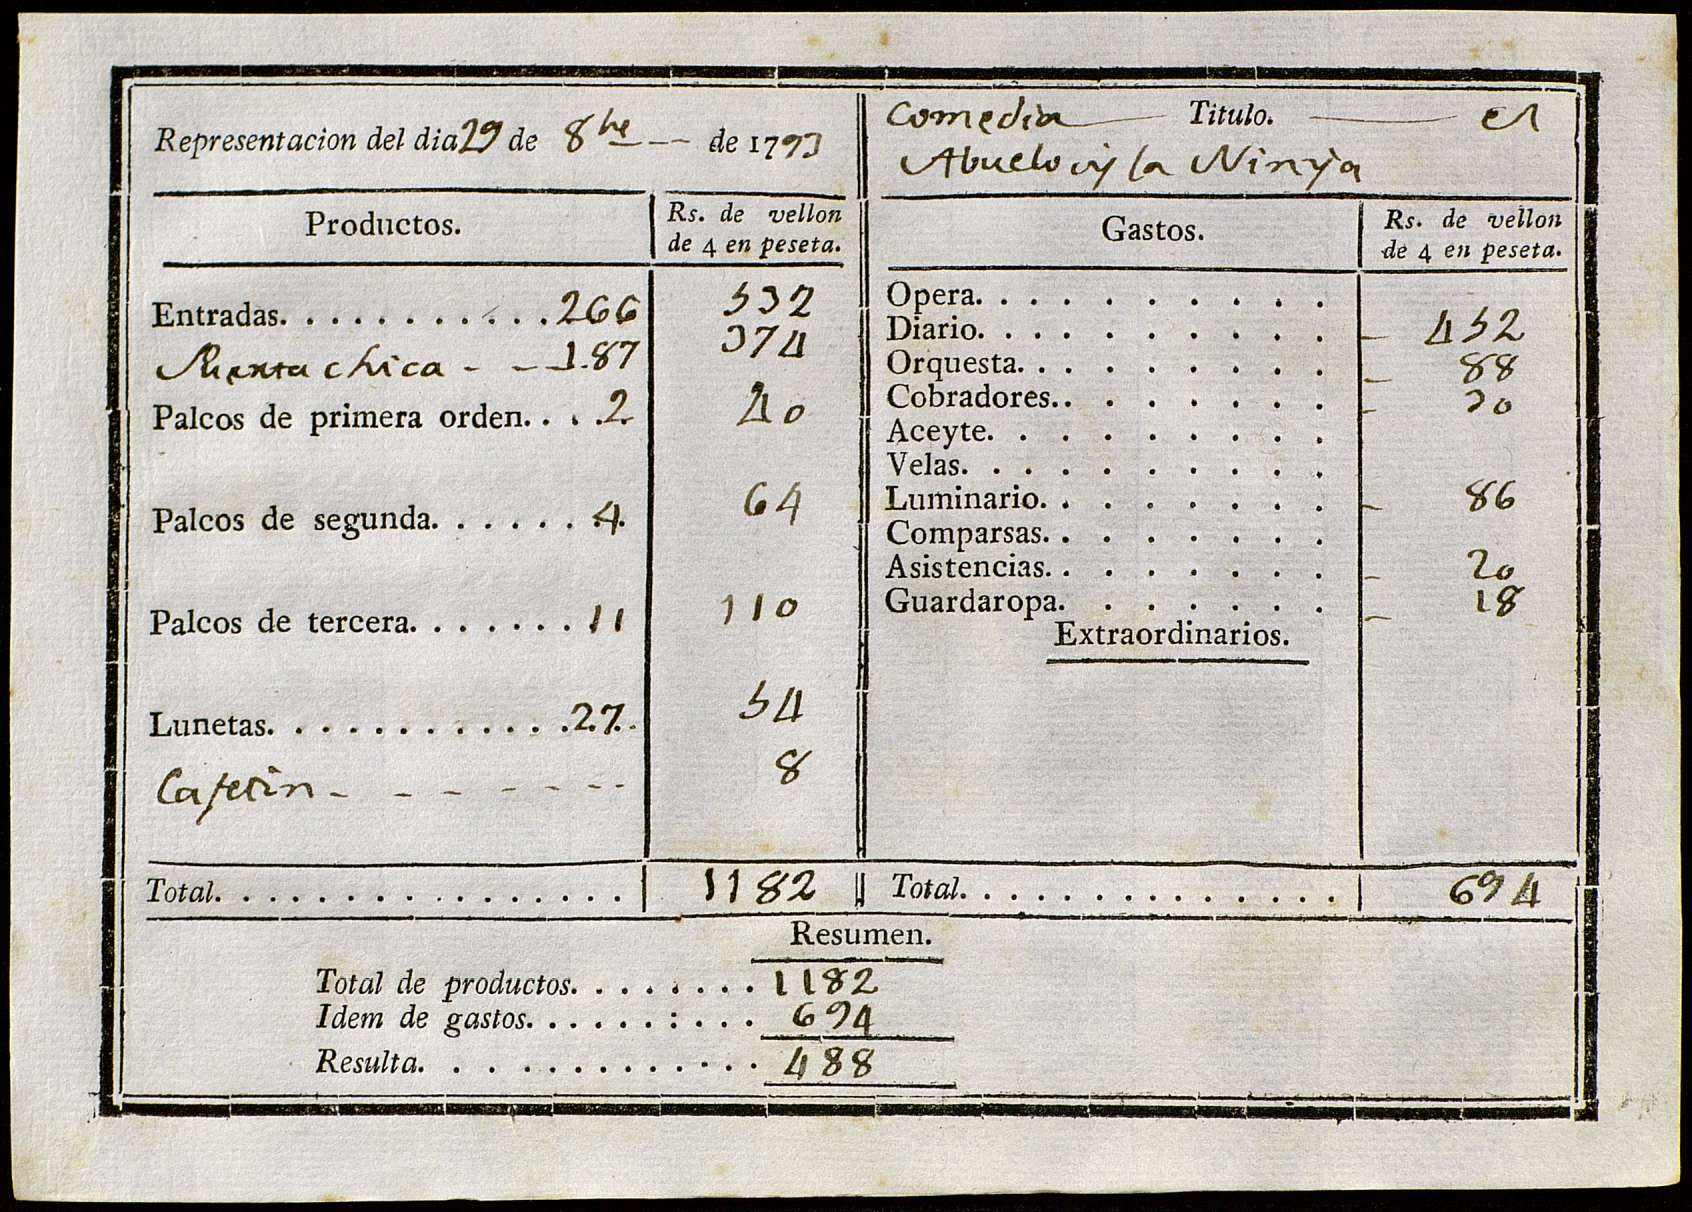 Representacion del dia 29 de 8bre -- de 1793
Comedia — Titulo. — el
Abuelo y la Ninya
Productos. Rs. de vellon de 4 en peseta.
Gastos. Rs. de vellon de 4 en peseta.
Entradas. . . . . . . . . . . . 266 532
Puerta chica - - - 187 374
Palcos de primera orden. . . . 2 40
Palcos de segunda. . . . . . . 4 64
Palcos de tercera. . . . . . . . 11 110
Lunetas. . . . . . . . . . . . 27 54
Cafetin - - - - - - - 8
Opera. . . . . . . . . .
Diario. . . . . . . . . . - 452
Orquesta. . . . . . . . . - 88
Cobradores. . . . . . . . - 30
Aceyte. . . . . . . . .
Velas. . . . . . . . . .
Luminario. . . . . . . . - 86
Comparsas. . . . . . . .
Asistencias. . . . . . . . - 20
Guardaropa. . . . . . . - 18
Extraordinarios.
Total. . . . . . . . . . . . . . . . 1182
Total. . . . . . . . . . . . . . . 694
Resumen.
Total de productos. . . . . . . . 1182
Idem de gastos. . . . . . : . . . 694
Resulta. . . . . . . . . . . . . 488